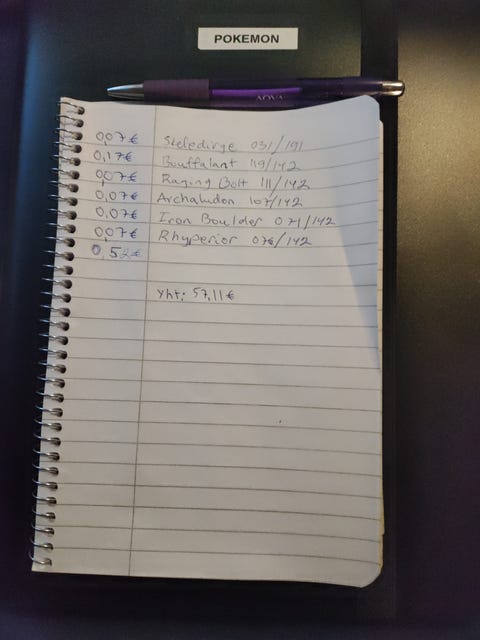 POKEMON
0,07€ Skeledirge 031/191
0,17€ Bouffalant 119/142
0,07€ Raging Bolt 111/142
0,07€ Archaludon 107/142
0,07€ Iron Boulder 071/142
0,07€ Rhyperior 076/142
0,52€
Yht: 57,11€